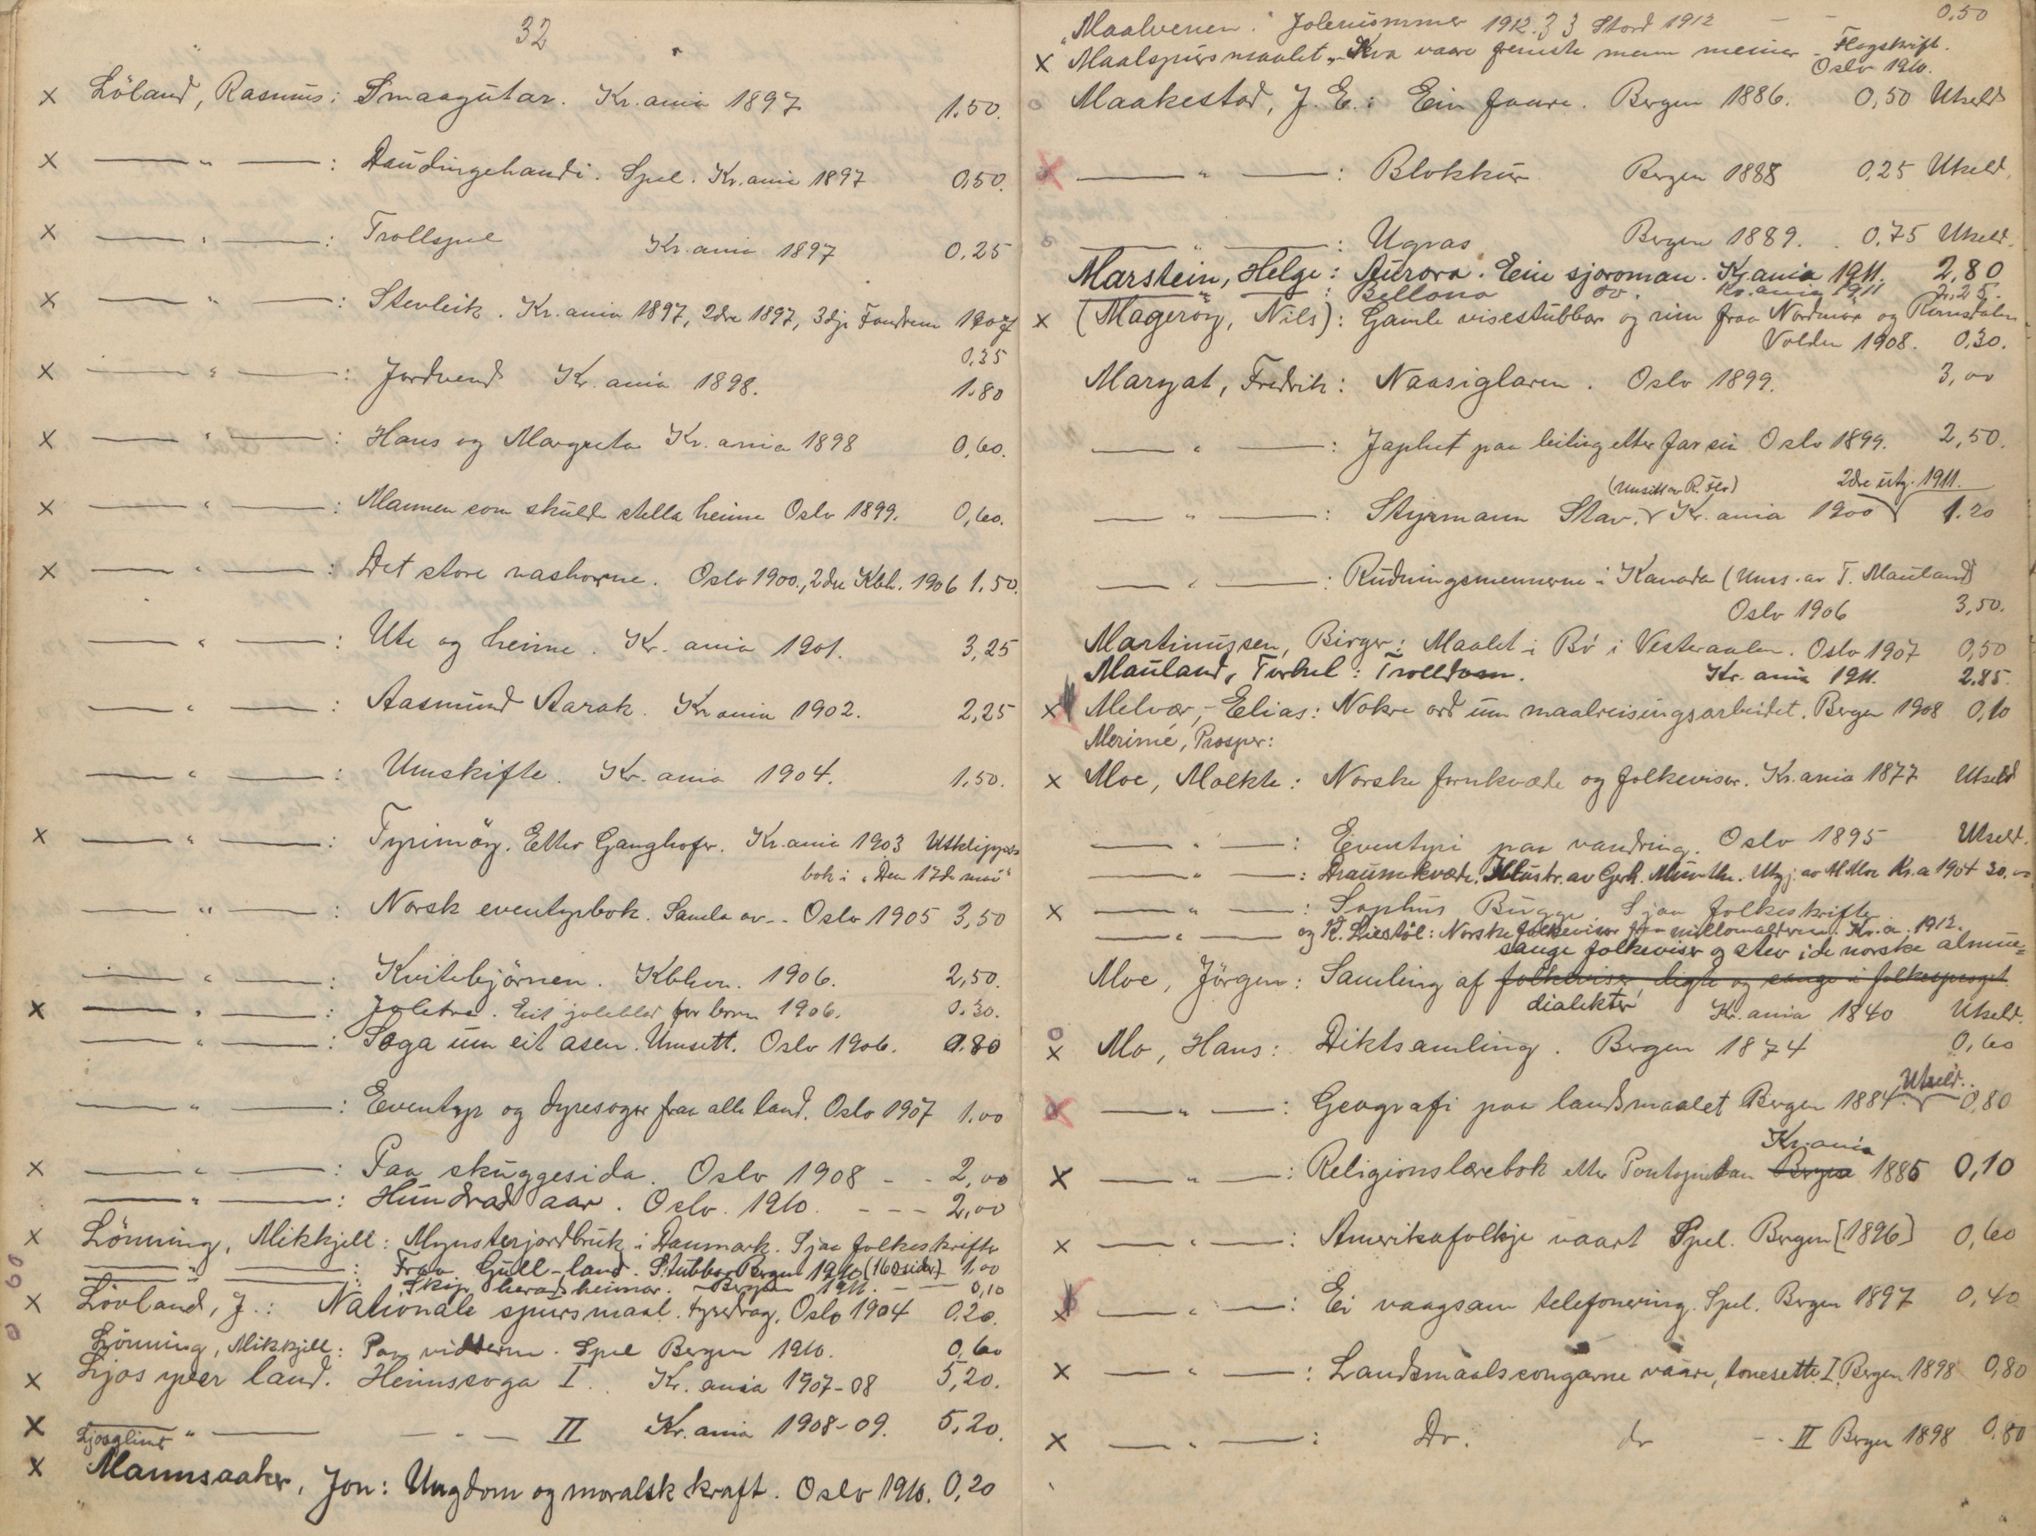 32
x Löland, Rasmus: Smaagutar. Kr.ania 1897 1.50.
x — " — : Daudingehandi. Spel. Kr.ania 1897 0,50.
x — " — : Trollspel Kr.ania 1897 0,25
x — " — : Stevleik. Kr.ania 1897, 2dre 1897, 3dje
0,35
x — " — : Jordvend Kr.ania 1898. 1.80
x — " — : Hans og Margreta Kr.ania 1898 0,60.
x — " — : Mannen som skulde stella heime Oslo 1899. 0,60.
x — " — : Det store nashorne. Oslo 1900., 2dre Kbh. 1906 1,50.
— " — : Ute og heime. Kr.ania 1901. 3,25
— " — : Aasmund Aarak. Kr.ania 1902. 2,25
— " — : Umskifte. Kr.ania 1904. 1,50.
x — " — : Tyrimöy. Etter Ganghofer. Kr.ania 1903 Utklipps-
bok i "Den 17de mai"
— " — : Norsk eventyrbok. Samla av -- Oslo 1905 3,50
— " — : Kvitebjörnen. Kbhvn. 1906. 2,50.
x — " — : Joletre. Eit joleblad for born 1906. 0.30.
— " — : Soga um eit asen. Umsett. Oslo 1906. 0.80
— " — : Eventyr og dyresogor fraa alle land. Oslo 1907 1,00
x — " — : Paa skuggesida. Oslo 1908 - - 2,00
— " — : Hundrad aar. Oslo. 1910. - - - 2,00
x Lönning, Mikkjell: Mynsterjordbruk i Danmark. Sjaa folkeskrifter
— " — : Fraa Gull-land. Stubbar Bergen 1910 (160 sider) 1.00
Skip heradsheimar. Bergen 1911. - - 0,10
x Lövland, J.: Nationale spursmaal. Oslo 1904 0,20.
Lönning, Mikkjell: Paa vidderne. Spel Bergen 1910. 0,60
x Ljos yver land. Heimsoga I. Kr.ania 1907-08 5,20.
x — " — — " — II Kr.ania 1908-09. 5,20.
Ljosglimt
x Mannsaaker, Jon: Ungdom og moralsk kraft. Oslo 1910. 0,20
"Maalvenen". Jolenummer 1912. Stord 1912 - - 0,50
x Maalspursmaalet, Kva vaare fremste menn meiner - Flogskrift.
Oslo 1910.
o Maakestad, J. E.: Ein faare. Bergen 1886. 0,50 Utseld
x — " — : Blokkur Bergen 1888 0,25 Utseld.
o — " — : Ugras Bergen 1889. . 0.75 Utseld.
Marstein, Helge: Aurora. Ein sjoroman. Kr.ania 1911. 2,80
— " — : Bellona do. Kr.ania 1911 2.25.
x (Mageröy, Nils): Gamle visestubbar og rim fraa Nordmör og Romsdalen
Volden 1908. 0,30.
Maryat, Fredrik: Naasiglaren. Oslo 1899. 3,00
— " — : Japhet paa leiting etter far sin Oslo 1899. 2,50.
(Umsett av R. Flo) 2dre utg. 1911.
— " — : Styrmann Stav. Kr.ania 1900 1.20
— " — : Rudningsmennerne i Kanada (Ums. av T. Mauland)
Oslo 1906 3,50.
Martinussen, Birger: Maalet i Bö i Vesteraalen. Oslo 1907 0,50
Mauland, Torkel: Trolldom. Kr.ania 1911. 2.85.
x Melvær, Elias: Nokre ord um maalreisingsarbeidet. Bergen 1908 0,10
Merimé, Prosper:
x Moe, Moltke: Norske fornkvæde og folkevisor. Kr.ania 1877 Utseld
— " — : Eventyri paa vandring. Oslo 1895 Utseld.
— " — : Draumkvæde. Illustr. av Gerh. Munthe. Utgj. av M Moe Kr.a 1904 30.00
x — " — : Sophus Bugge. Sjaa folkeskrifter
— " — og K. Liestöl: Norske folkevisor fraa millomalderen. Kr.a. 1912.
sange folkeviser og stev i de norske almue=
Moe, Jörgen: Samling af folkeviser digte og sange i folkesproget
dialekter Kr.ania 1840 Utseld.
o x Mo, Hans: Diktsamling. Bergen 1874 0,60
Utseld.
x — " — : Geografi paa landsmaalet Bergen 1884. 0,80
Kr.ania
x — " — : Religionslærebok etter Pontoppidan Bergen 1885 0,10
x — " — : Amerikafolkje vaart Spel. Bergen [1896] 0,60
x — " — : Ei vaagsam telefonering. Spel. Bergen 1897 0,40
x — " — : Landsmaalssongarne vaare, tonesette. I. Bergen 1898 0,80
x — " — : Do. do - - II Bergen 1898 0.80